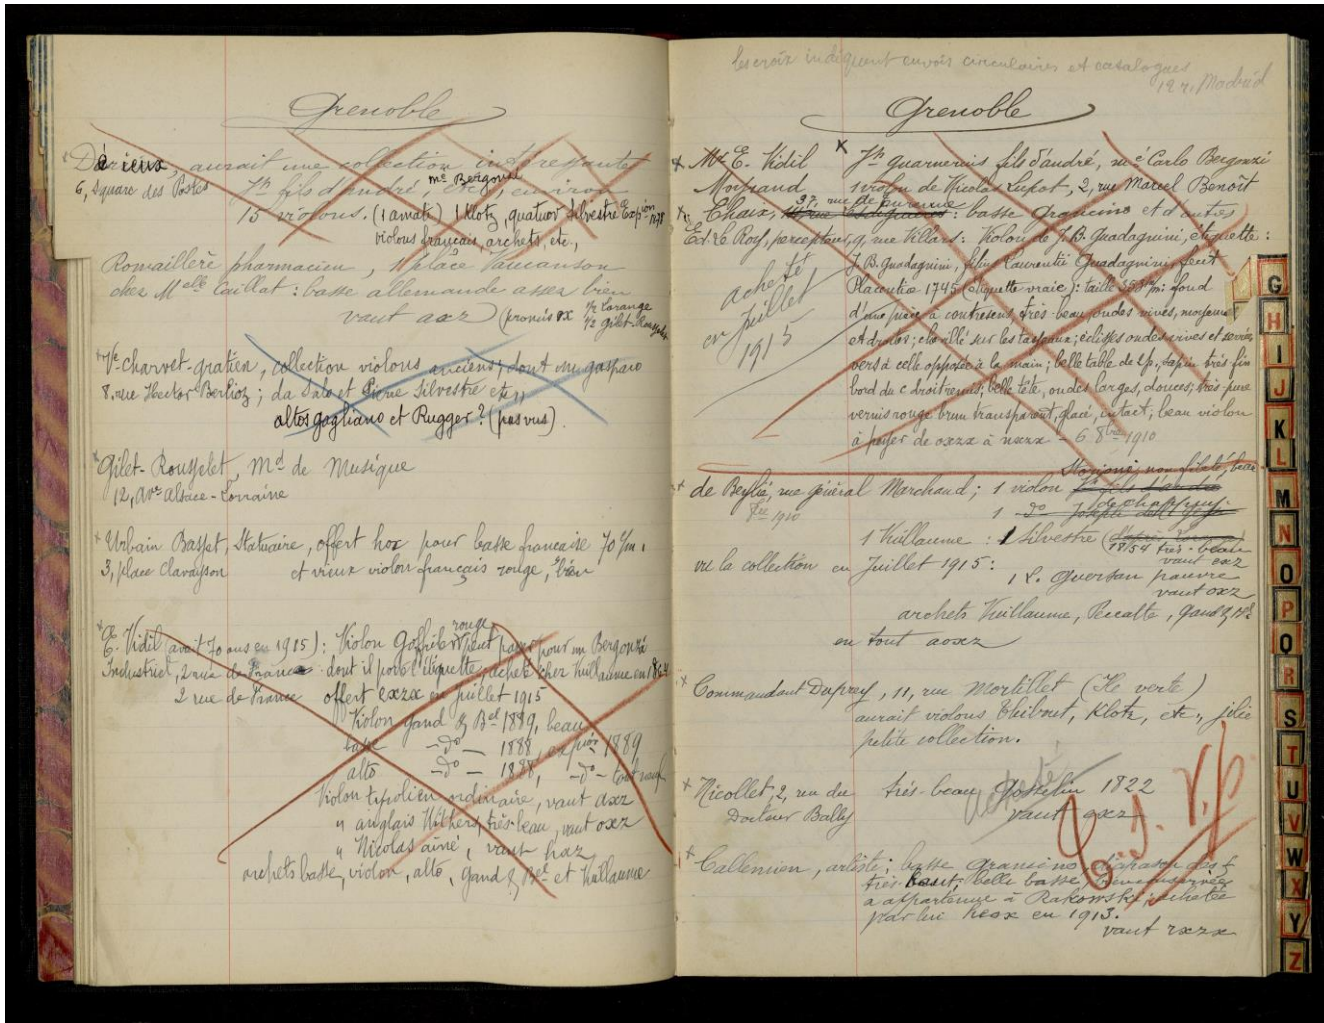 Grenoble
Dérieux, aurait une collection intéressante
6, Square des Postes Jh fils d'andré, me Bergonzi, etc, environ
15 violons. (1 amati) 1 Klotz, quatuor Silvestre Expion 1878
violons français, archets, etc,
Romaillere pharmacien, 11 place Vaucanson
chez Melle Caillat : basse allemande assez bien
vaut axz (promis ox 1/2 Larange
1/2 Gilet-Rousselet
Ve Charvet-gratien, collection violons anciens; dont un gasparo
8, rue Hector Berlioz; da Salo et Pierre Silvestre etc,,
altos gagliano et Rugger? (pas vus).
Gilet-Rousselet, Md de Musique
12, Ave alsace-Lorraine
Urbain Basset, Statuaire, offert hox pour basse francaise 70 c/m.
3, place Clavayson et vieux violon français rouge, bien
E. Vidil (avait 70 ans en 1915) : Violon Goffriller rouge peut passer pour un Bergonzi
Industriel, 2 rue de France dont il porte l'étiquette, acheté chez Vuillaume en 1864
2 rue de France offert exzx en juillet 1915
Violon gand & Bel 1889, beau
basse -do- 1888, expion 1889
alto -do- 1888, -do- tout neuf
Violon tyrolien ordinaire, vaut axz
" anglais Withers, très-beau, vaut oxz
" Nicolas ainé, vaut haz
archets basse, violon, alto, Gand & Bel et Vuillaume
les croix indiquent envois circulaires et catalogues
127, Madrid
Grenoble
Mr E. Vidil Jh guarnerius fils d'andré, me Carlo Bergonzi
Moirand 1 violon de Nicolas Lupot, 2, rue Marcel Benoît
Chaix, 37, rue de : basse Grancino et d'autres
Ed. Le Roy, percepteur, 9, rue Villars : Violon de J. B. Guadagnini, étiquette :
J. B. Guadagnini, filius Laurentii Guadagnini fecit
Placentiæ 1745 (étiquette vraie) : taille 353 m/m : fond
d'une pièce à contresens, très-beau, ondes vives, moyennes
et droites; chevillé sur les tasseaux; éclisses ondes vives et serrées
vers à celle opposée à la main; belle table de 2 p., sapin très fin
bord du c droit remis; belle tête, ondes larges, douces; très-pure
vernis rouge brun transparent, glacé, intact, beau violon
à payer de oxzx à nxzx - 6 8bre 1910
acheté
en juillet
1915
de Beylié, rue général Marchand; 1 violon Storioni, non fileté, beau
Xre 1910 1 do
1 Vuillaume : 1 Silvestre
1854 très-beau
vaut exz
vu la collection en Juillet 1915 : 1 L. Guersan pauvre
vaut oxz
archets Vuillaume, Peccatte, Gand &
en tout aoxz
Commandant Duprey, 11, rue Mortillet (Ile verte)
aurait violons Thibout, Klotz, etc,, jolie
petite collection.
Nicollet, 2, rue du très-beau Gosselin 1822
Docteur Bally vaut oxz
acheté
C. J. V.
Callemien, artiste; basse Grancino,
très haut, belle basse,
a appartenue à Rakowski, achetée
par lui heox en 1913.
vaut rxzx
G
H
I
J
K
L
M
N
O
P
Q
R
S
T
U
V
W
X
Y
Z